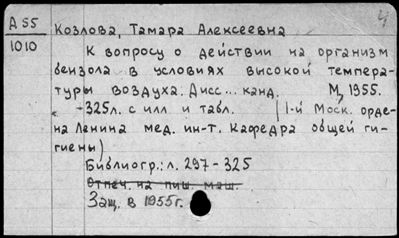 4
А 55
1010
Козлова, Тамара Алексеевна
К вопросу о действии на организм
бензола в условиях высокой темпера-
туры воздуха. Дисс... канд. М, 1955.
325л. с илл. и табл. (1-й Моск. орде-
на Ленина мед. ин-т. Кафедра общей ги-
гиены)
Библиогр.: л. 297-325
Отпеч. на пиш. маш.
Защ. в 1955г.